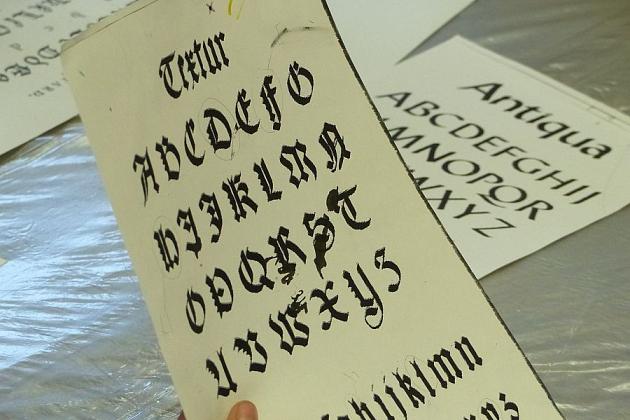 Textur
ABCDEFG
HIJKLMN
OPQRST
UVWXYZ
hijklmn
Antiqua
ABCDEFGHIJ
MNOPQR
WXYZ